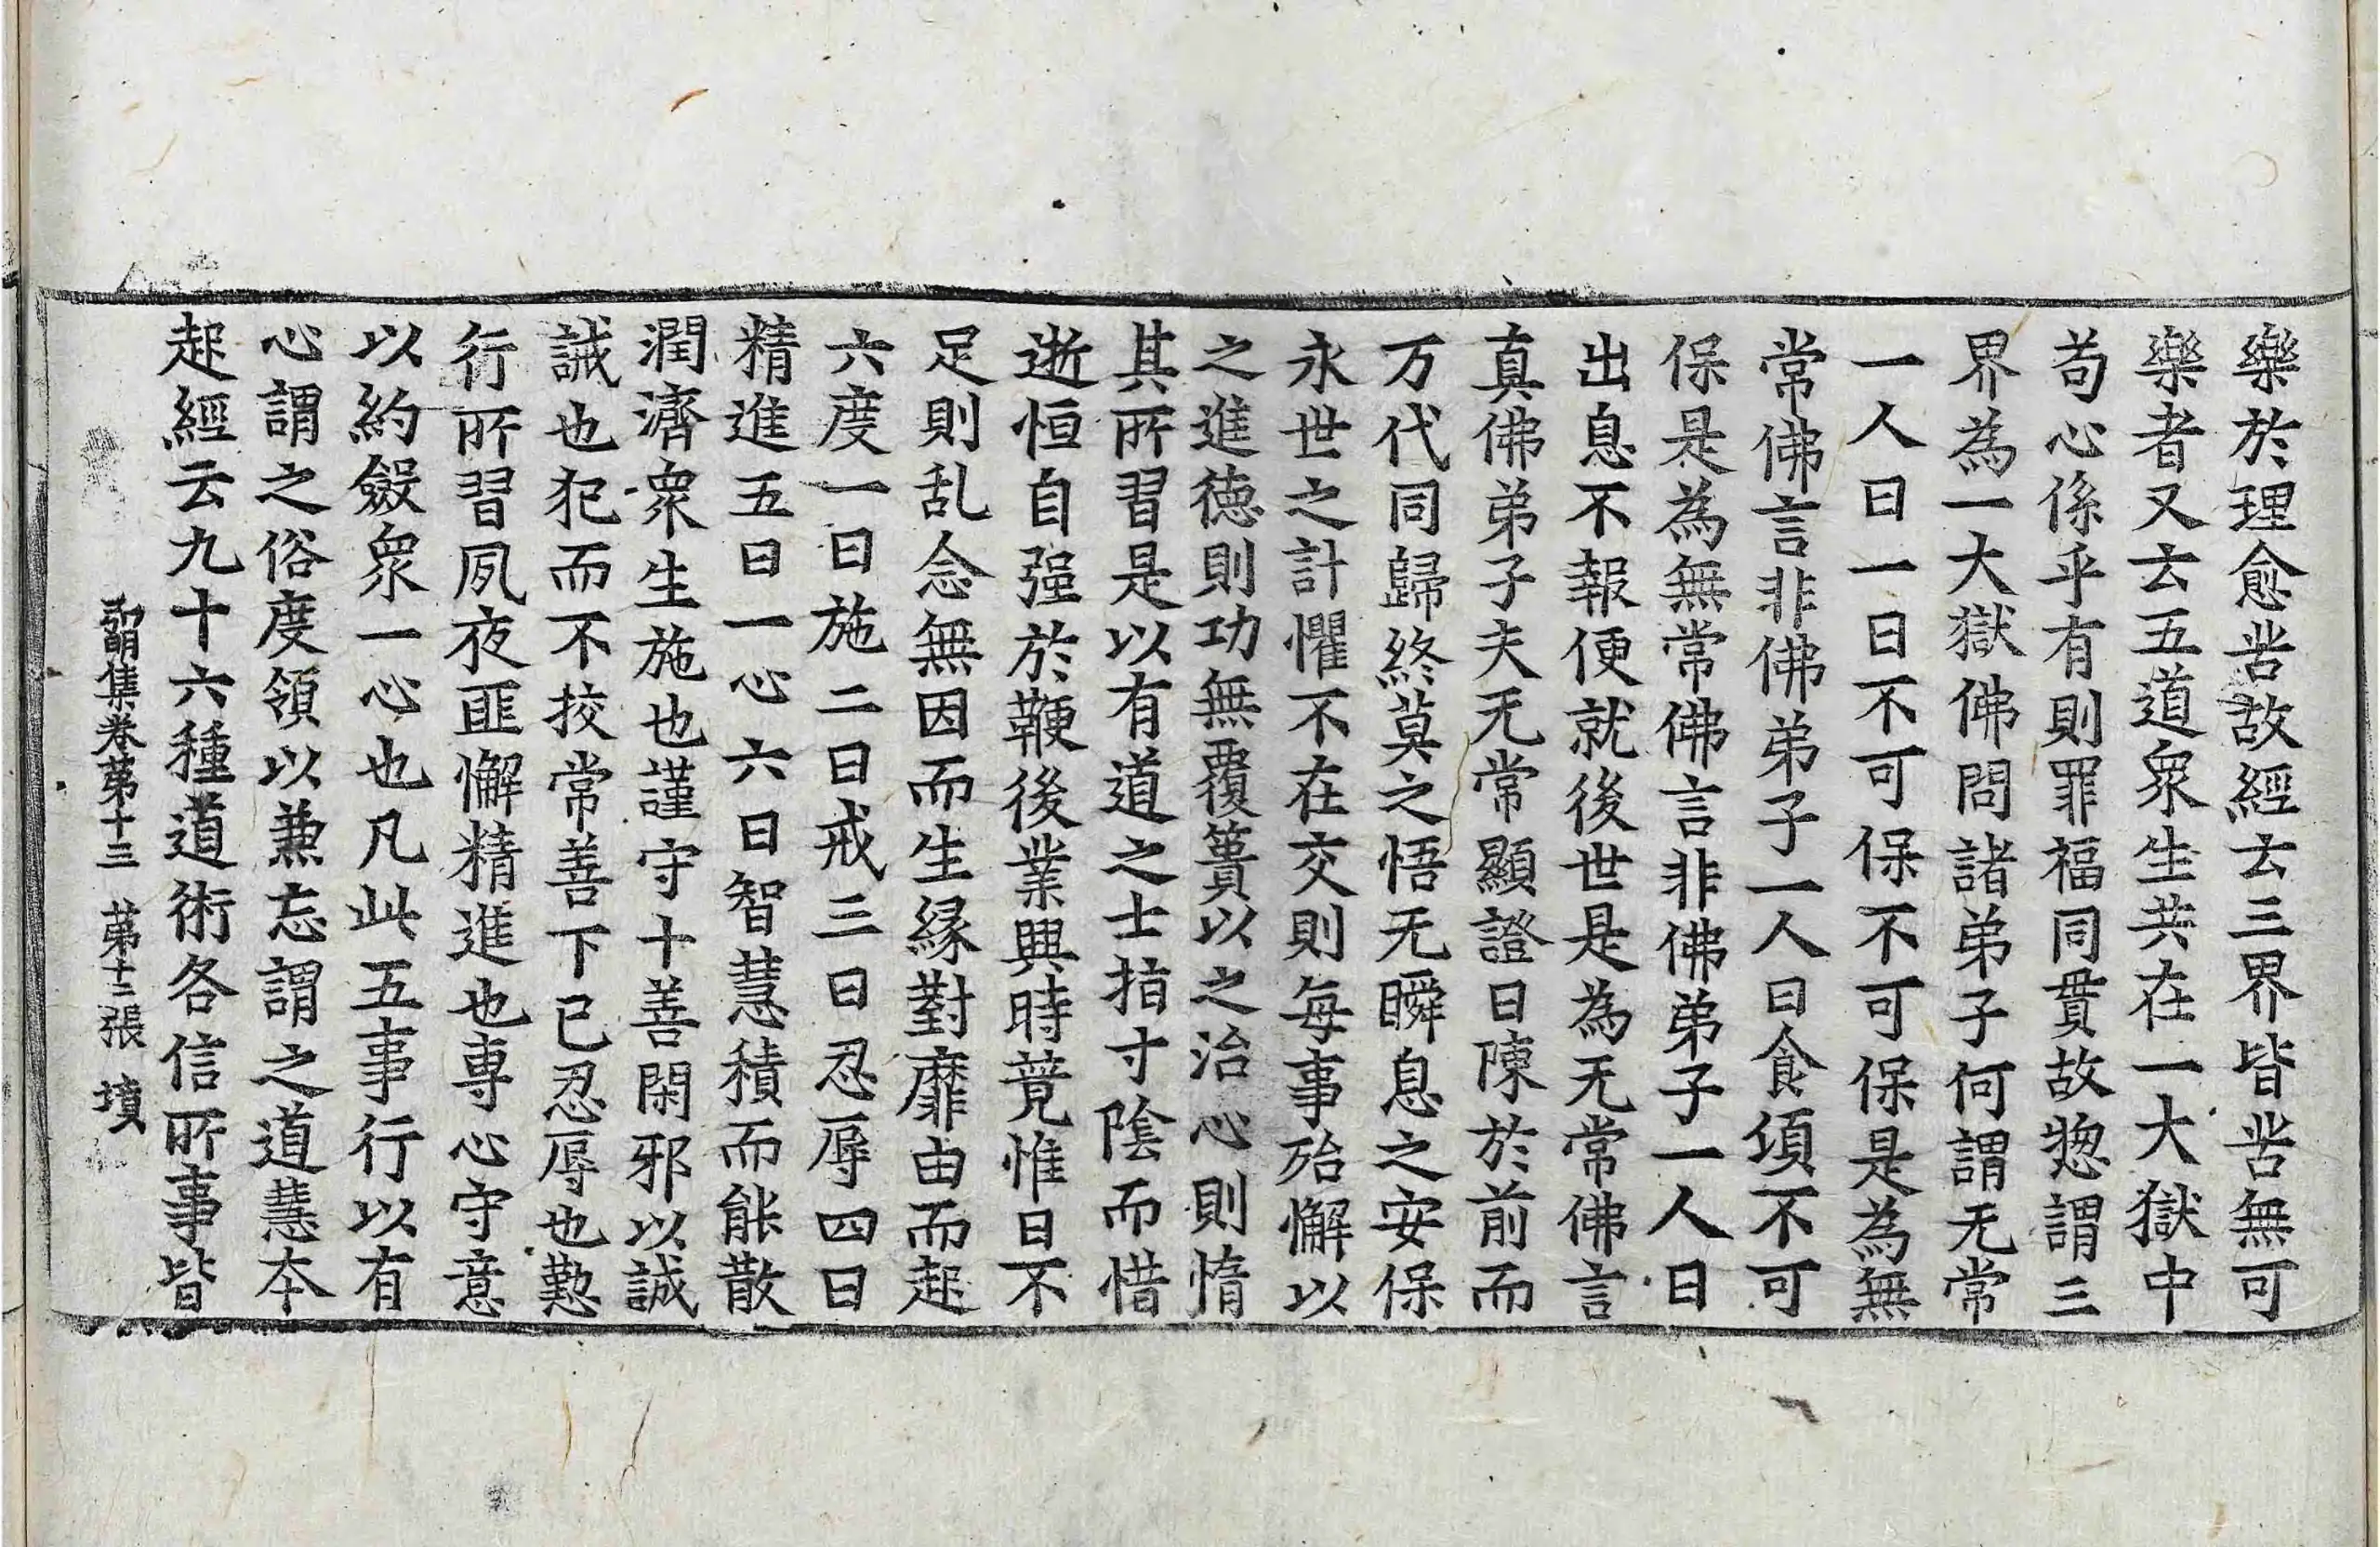 樂於理愈苦故經云三界皆苦無可
樂者又云五道衆生共在一大獄中
苟心係乎有則罪福同貫故惣謂三
界為一大獄佛問諸弟子何謂无常
一人曰一日不可保不可保是為無
常佛言非佛弟子一人曰食頃不可
保是為無常佛言非佛弟子一人曰
出息不報便就後世是為无常佛言
真佛弟子夫无常顯證日陳於前而
万代同歸終莫之悟无瞬息之安保
永世之計懼不在交則每事殆懈以
之進德則功無覆簣以之治心則惰
其所習是以有道之士指寸陰而惜
逝恒自强於鞭後業興時竟惟日不
足則乱念無因而生緣對靡由而起
六度一曰施二曰戒三曰忍辱四曰
精進五曰一心六曰智慧積而能散
潤濟衆生施也謹守十善閑邪以誠
誡也犯而不挍常善下已忍辱也懃
行所習夙夜匪懈精進也專心守意
以約斂衆一心也凡此五事行以有
心謂之俗度領以兼忘謂之道慧本
起經云九十六種道術各信所事皆
弘明集卷第十三 第十二張 墳